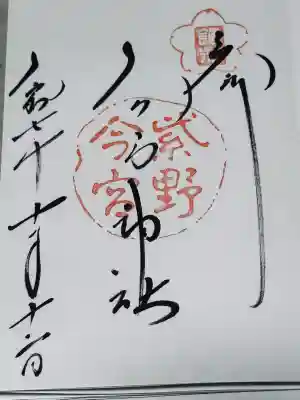 奉拝
今宮神社
紫野
今宮
令和七年十月十六日